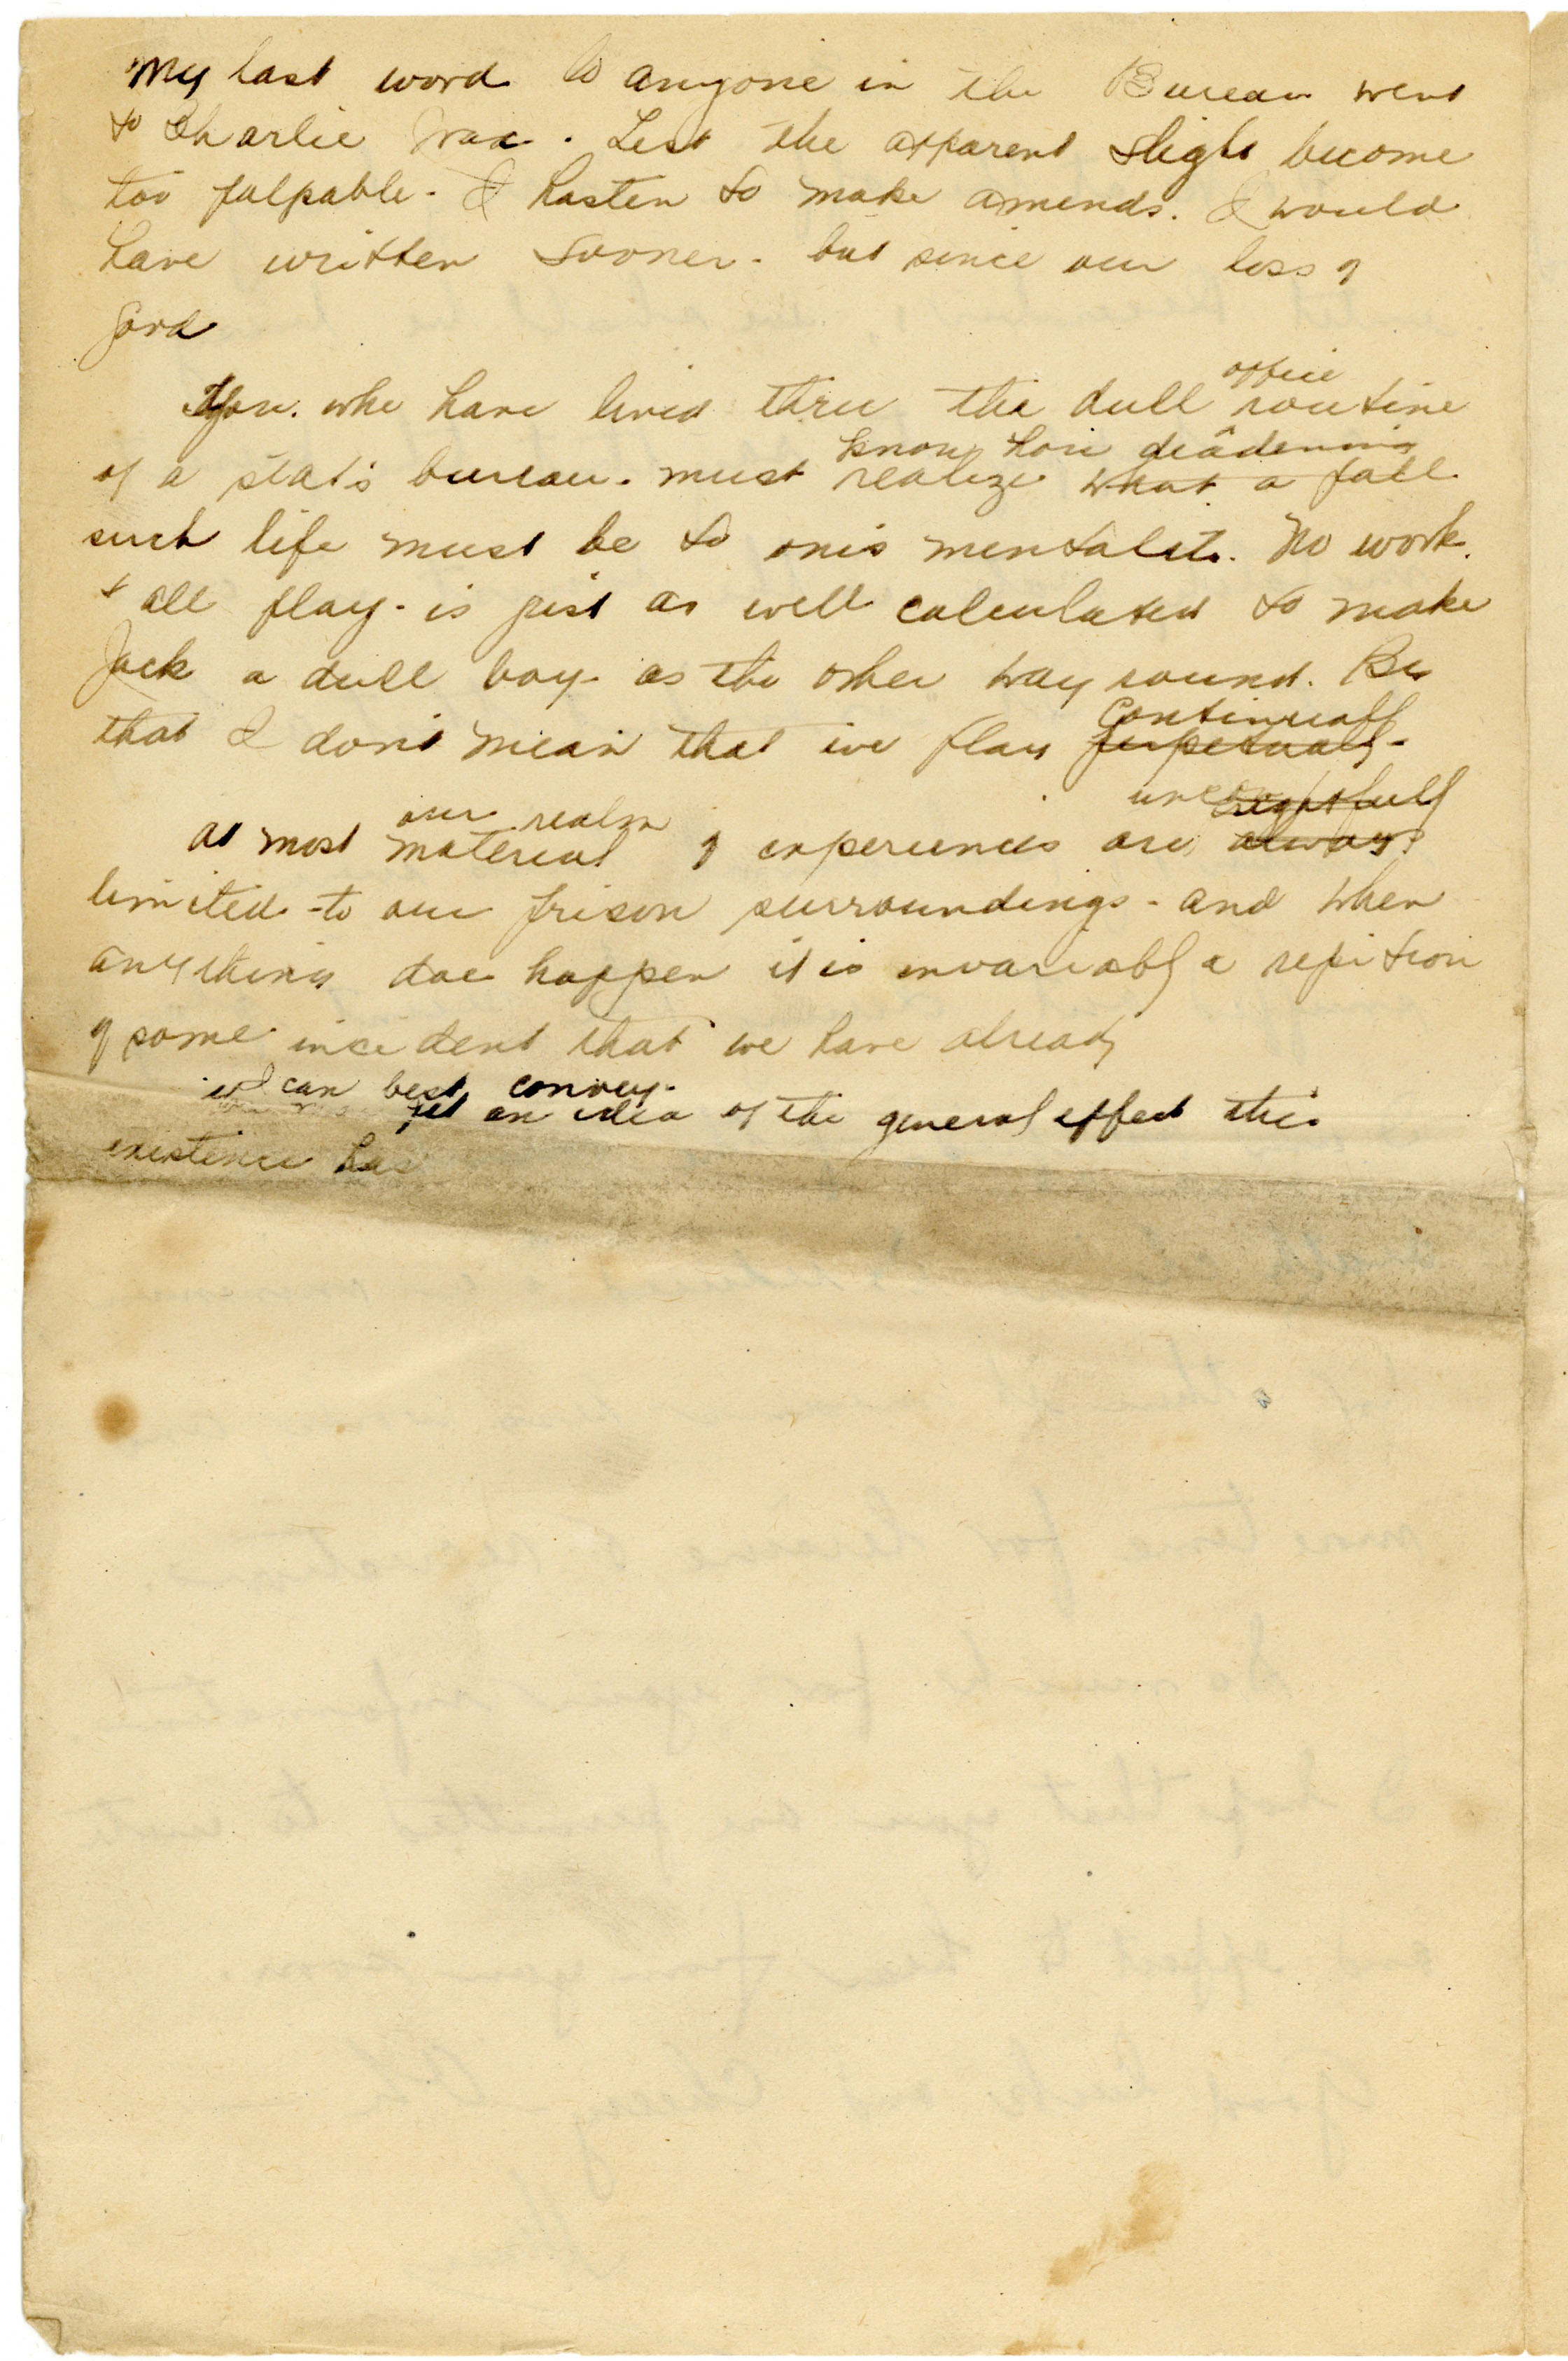 My last word to anyone in the Bureau went
to Charlie Wax. Lest the apparent slight become
too palpable - I hasten to make amends. I would
have written sooner - but since our loss of
Gord
You. who have lived thru the dull office routine
know how deadening
of a state's bureau. must realize what a fate
such life must be to one's mentality. No work.
& all play - is just as well calculated to make
Jack a dull boy - as the other way round. By
continually
that I don't mean that we play perpetually -
our realm
At most material of experiences are always
limited - to our prison surroundings - and when
anything does happen it is invariably a repition
of some incident that we have already
I can best convey
an idea of the general effect this
existence has